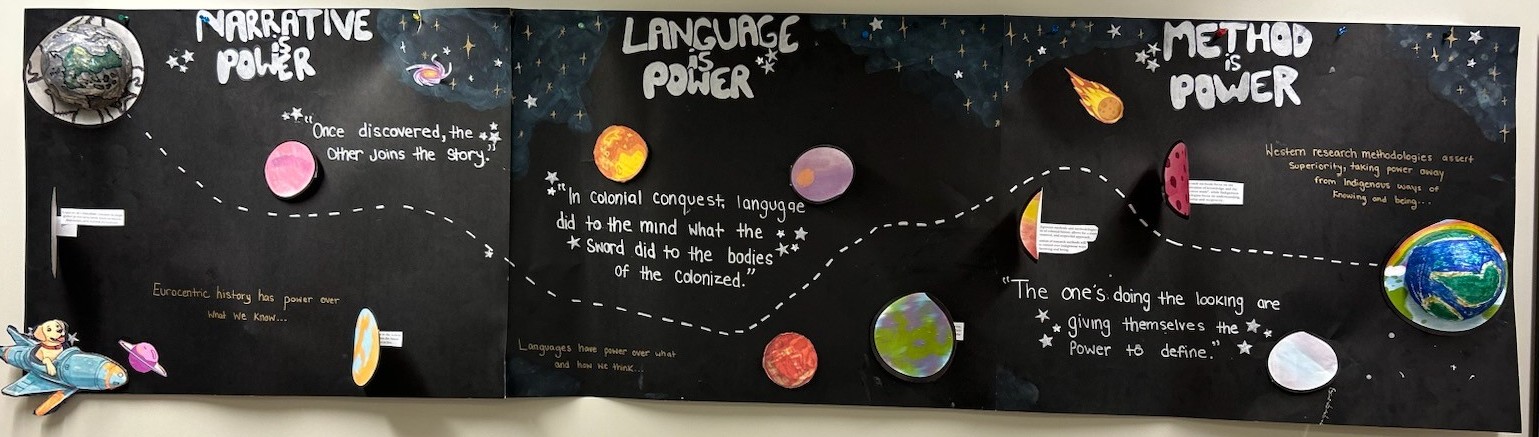 NARRATIVE
is
POWER
"Once discovered, the
Other Joins the Story."
Eurocentric history has power over
what we know...
LANGUAGE
is
POWER
"In colonial conquest, langugge
did to the mind what the
Sword did to the bodies
of the colonized."
Languages have power over what
and how we think...
METHOD
is
POWER
Western research methodologies assert
Superiority, taking power away
from Indigenous ways of
Knowing and being...
"The one's doing the looking are
giving themselves the
Power to define."